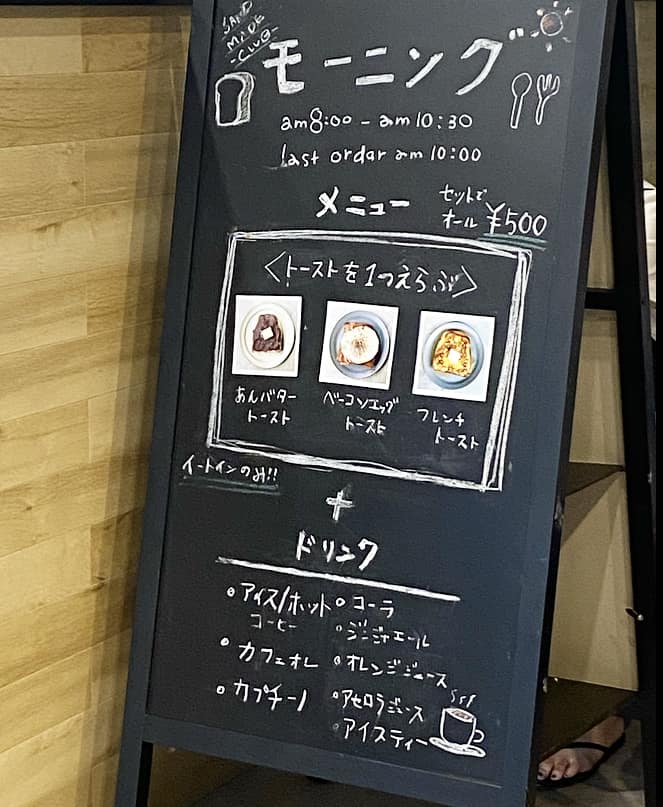 SAND
MADE
-CLUB-
モーニング
am8:00 - am10:30
last ordar am10:00
メニュー
セットで
オール ¥500
〈トーストを1つえらぶ〉
あんバター
トースト
ベーコンエッグ
トースト
フレンチ
トースト
イートインのみ!!
+
ドリンク
・アイス/ホット
コーヒー
・カフェオレ
・カプチーノ
・コーラ
・ジンジャエール
・オレンジジュース
・アセロラジュース
・アイスティー